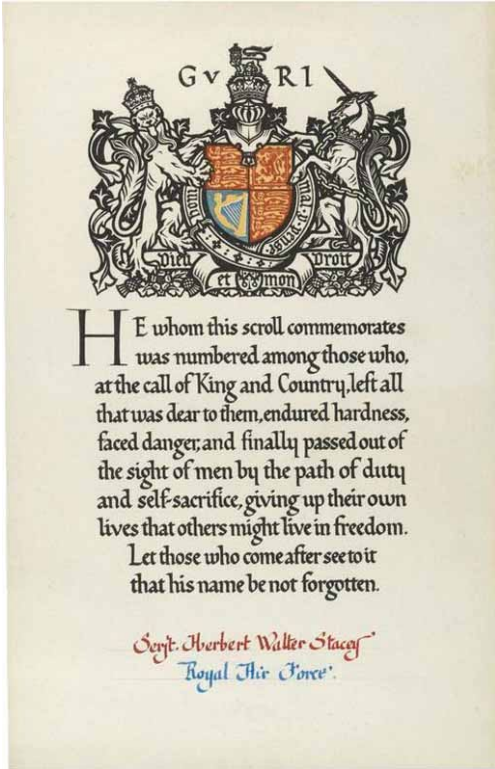 G V R I
HE whom this scroll commemorates
was numbered among those who,
at the call of King and Country, left all
that was dear to them, endured hardness,
faced danger, and finally passed out of
the sight of men by the path of duty
and self-sacrifice, giving up their own
lives that others might live in freedom.
Let those who come after see to it
that his name be not forgotten.
Serjt. Herbert Walter Stacey
Royal Air Force.
Dieu et mon Droit